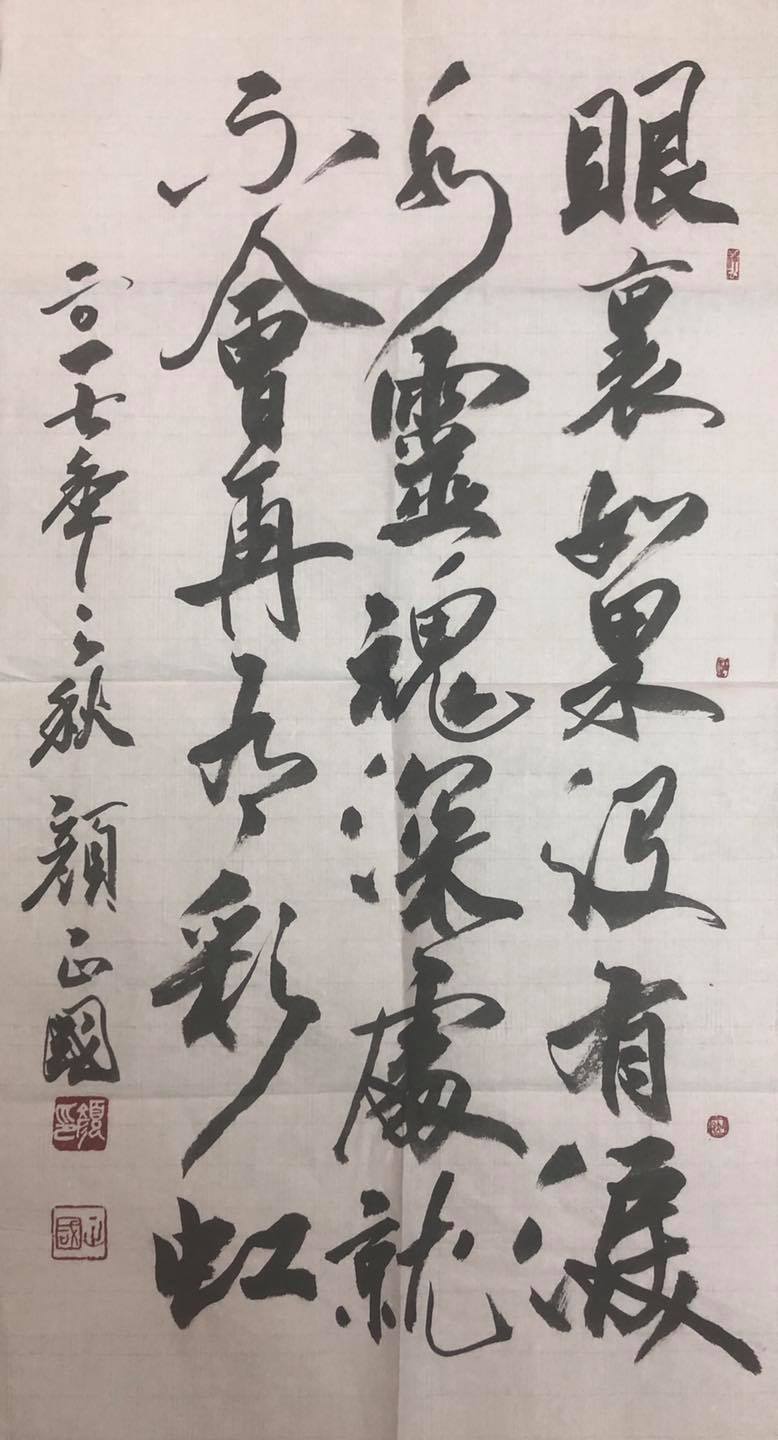 眼裏如果没有淚
水靈魂深處就
不會再有彩虹
二〇一七年之秋 顏正國
顏印
正國